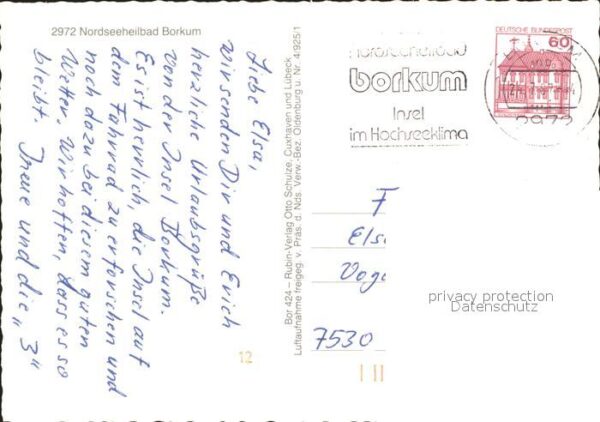 2972 Nordseeheilbad Borkum
Liebe Elsa,
wir senden Dir und Erich
herzliche Urlaubsgrüße
von der Insel Borkum.
Es ist herrlich, die Insel auf
dem Fahrrad zu erforschen und
noch dazu bei diesem guten
Wetter. Wir hoffen, dass es so
bleibt. Irene und die „3"
12
Bor 424 – Rubin-Verlag Otto Schulze, Cuxhaven und Lübeck
Luftaufnahme freigeg. v. Präs. d. Nds. Verw.-Bez. Oldenburg u. Nr. 4/925/1
Nordseeheilbad
borkum
Insel
im Hochseeklima
DEUTSCHE BUNDESPOST
60
2972
F
Els
Voge
7530
privacy protection
Datenschutz